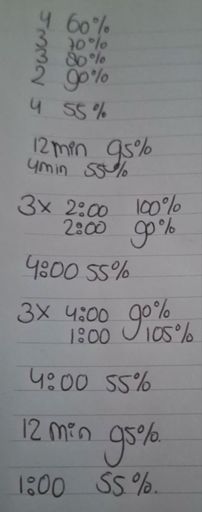 4 60%
3 70%
3 80%
2 90%
4 55%
12min 95%
4min 55%
3x 2:00 100%
2:00 90%
4:00 55%
3x 4:00 90%
1:00 105%
4:00 55%
12 min 95%.
1:00 55%.